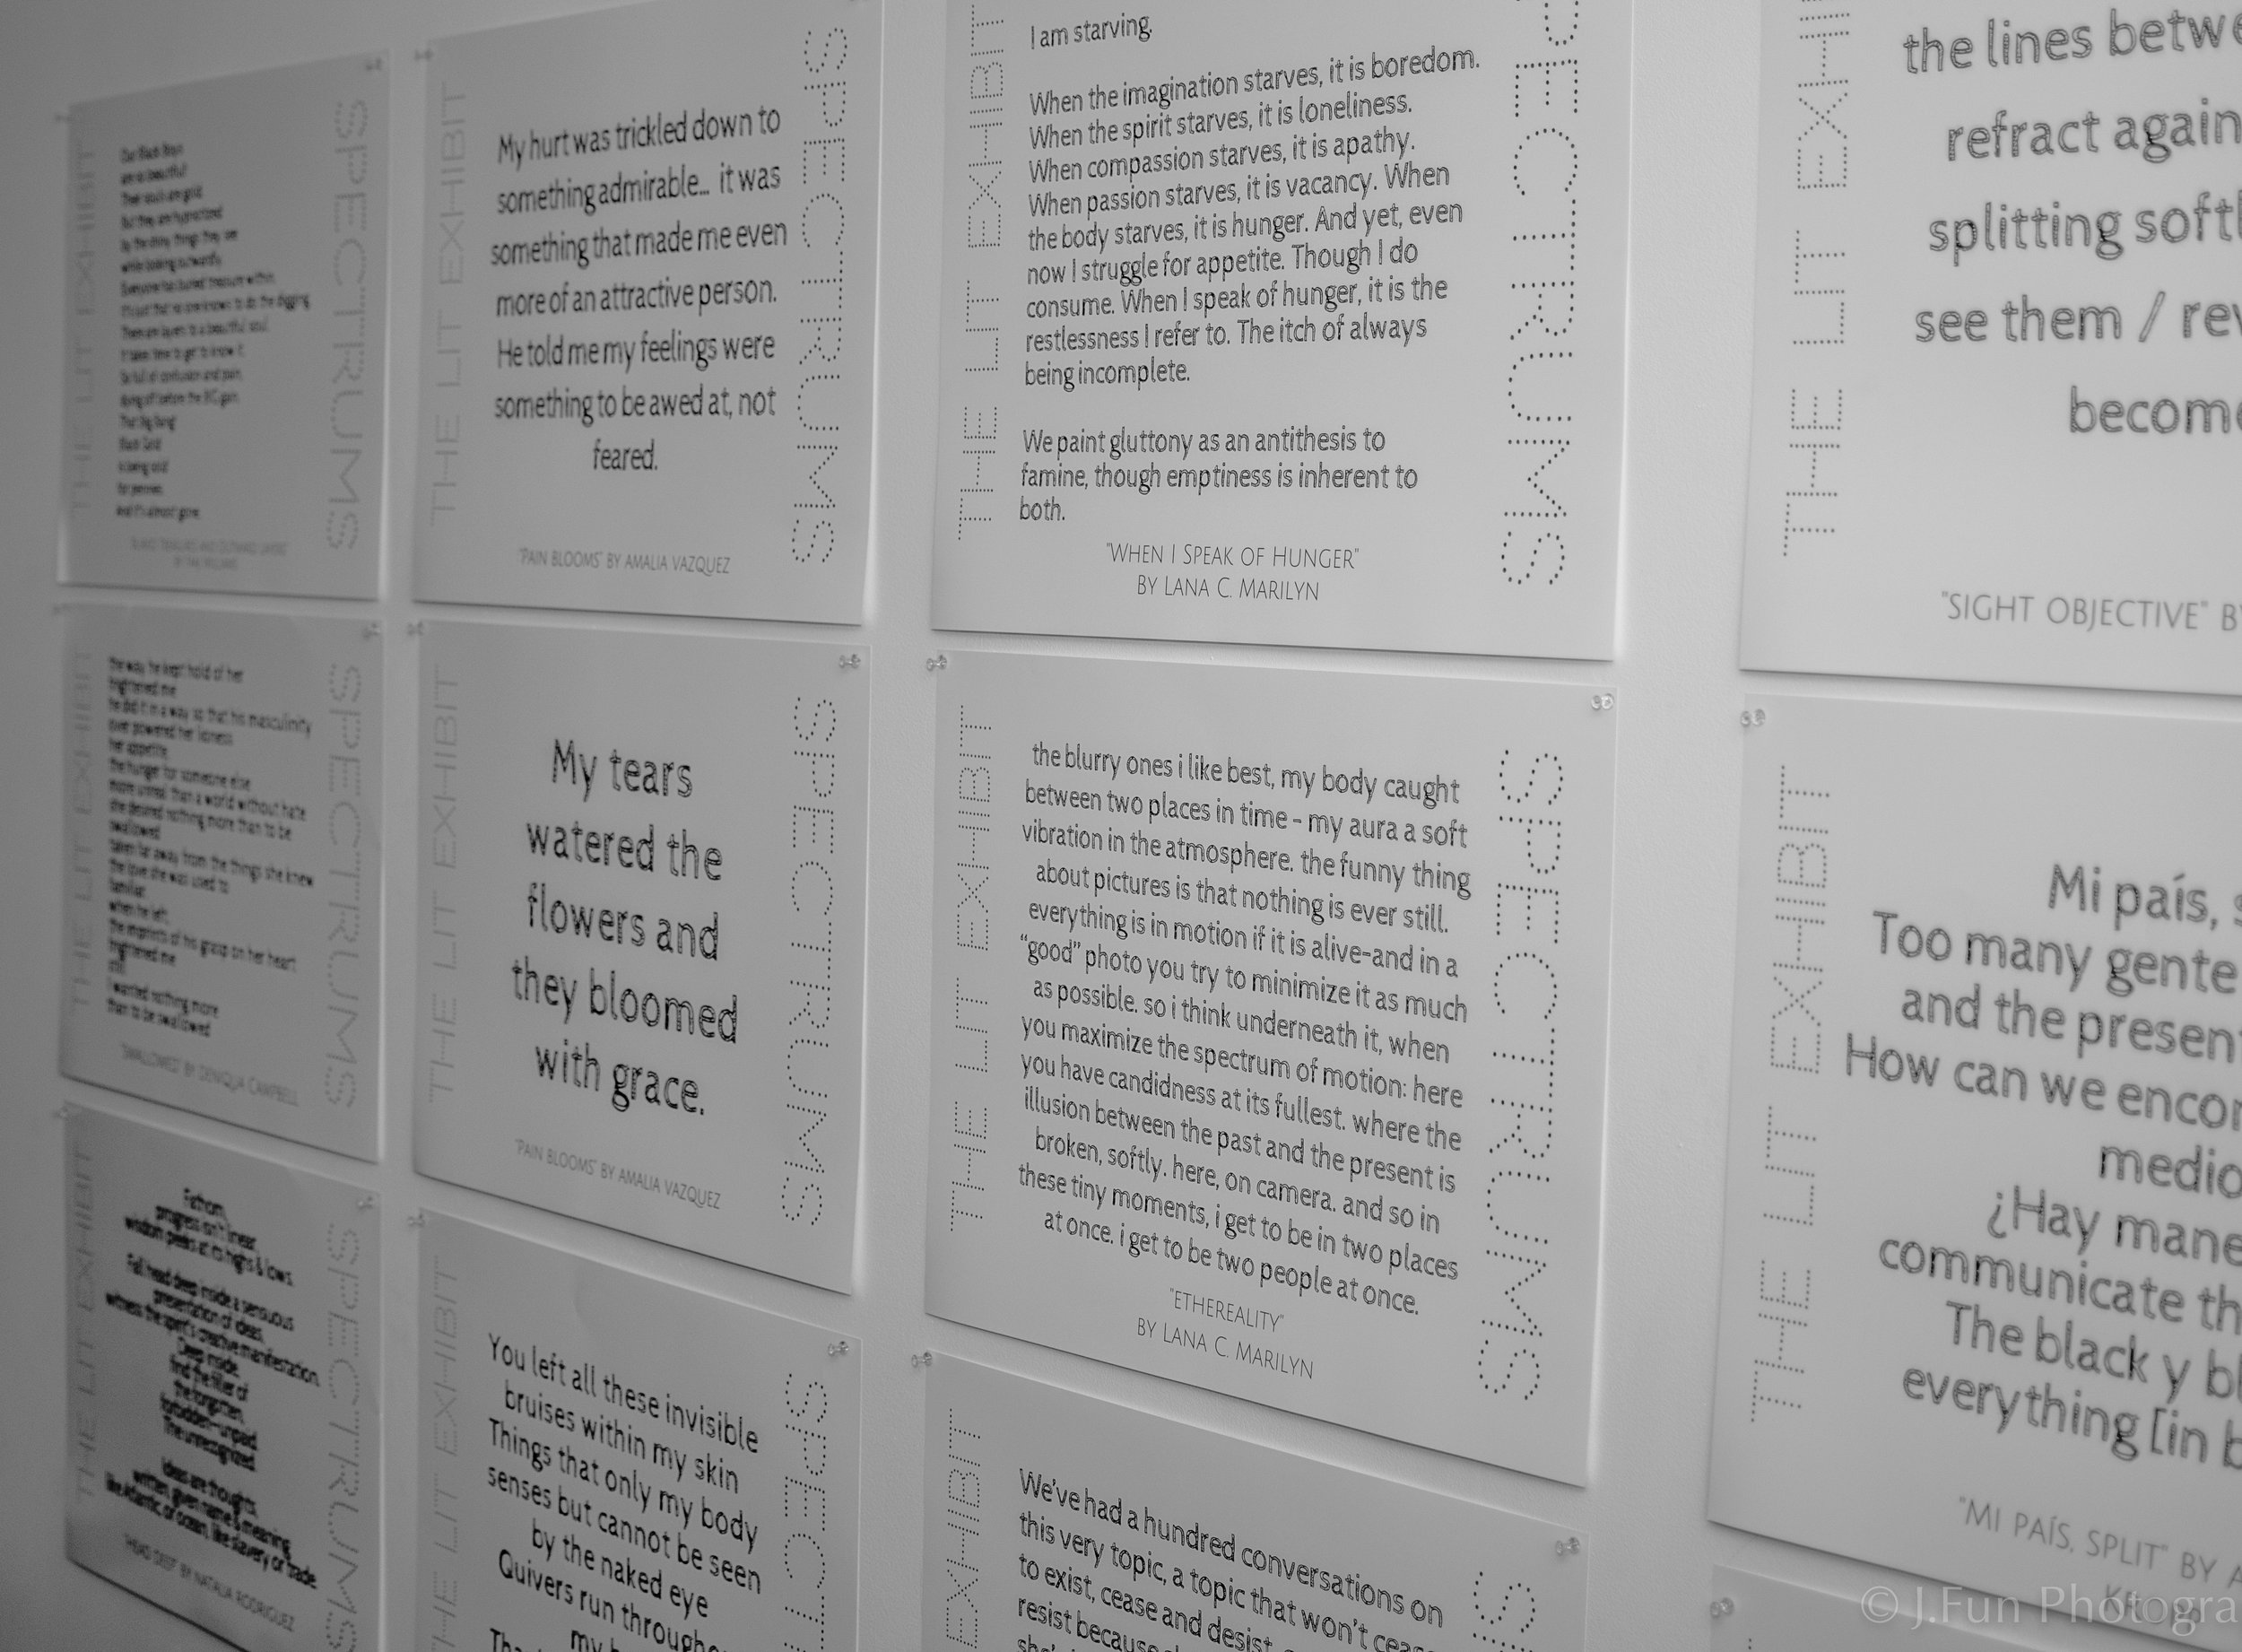 THE LIT EXHIBIT
Our Black Boys
are so beautiful!
Their souls are gold
But they are hypnotized
by the shiny things they see
while looking outwardly.
Everyone has buried treasure within.
It's just that no one knows to do the digging.
There are layers to a beautiful soul.
It takes time to get to know it.
So full of confusion and pain
dying off before the BIG gain.
That big bang!
Black Gold
is being sold
for pennies.
And it's almost gone.
SPECTRUMS
THE LIT EXHIBIT
My hurt was trickled down to
something admirable... it was
something that made me even
more of an attractive person.
He told me my feelings were
something to be awed at, not
feared.
"PAIN BLOOMS" BY AMALIA VAZQUEZ
SPECTRUMS
THE LIT EXHIBIT
I am starving.
When the imagination starves, it is boredom.
When the spirit starves, it is loneliness.
When compassion starves, it is apathy.
When passion starves, it is vacancy. When
the body starves, it is hunger. And yet, even
now I struggle for appetite. Though I do
consume. When I speak of hunger, it is the
restlessness I refer to. The itch of always
being incomplete.
We paint gluttony as an antithesis to
famine, though emptiness is inherent to
both.
"WHEN I SPEAK OF HUNGER"
BY LANA C. MARILYN
SPECTRUMS
THE LIT EXHIBIT
the lines betwe
refract again
splitting softl
see them / rev
become
"SIGHT OBJECTIVE" B
THE LIT EXHIBIT
the way he kept hold of her
frightened me
he did it in a way so that his masculinity
over powered her lioness
her appetite
the hunger for someone else
more unreal than a world without hate
she desired nothing more than to be
swallowed
taken far away from the things she knew
the love she was used to
familiar.
when he left,
the imprints of his grasp on her heart
frightened me
still
i wanted nothing more
than to be swallowed
"SWALLOWED" BY DENIQUA CAMPBELL
SPECTRUMS
THE LIT EXHIBIT
My tears
watered the
flowers and
they bloomed
with grace.
"PAIN BLOOMS" BY AMALIA VAZQUEZ
SPECTRUMS
THE LIT EXHIBIT
the blurry ones i like best, my body caught
between two places in time - my aura a soft
vibration in the atmosphere. the funny thing
about pictures is that nothing is ever still.
everything is in motion if it is alive-and in a
"good" photo you try to minimize it as much
as possible. so i think underneath it, when
you maximize the spectrum of motion: here
you have candidness at its fullest. where the
illusion between the past and the present is
broken, softly. here, on camera. and so in
these tiny moments, i get to be in two places
at once. i get to be two people at once.
"ETHEREALITY"
BY LANA C. MARILYN
SPECTRUMS
THE LIT EXHIBIT
Mi país, s
Too many gente
and the present
How can we encon
medio
¿Hay mane
communicate th
The black y bl
everything [in b
"MI PAÍS, SPLIT" BY A
THE LIT EXHIBIT
Fathom,
progress isn't linear,
wisdom peeks at its highs & lows.
Fall head deep inside a sensuous
presentation of ideas,
witness the spirit's creative manifestation.
Deep inside,
find the filler of
the forgotten,
forbidden—unpaid
The unrecognized.
Ideas are thoughts,
written, given name & meaning
like Atlantic, or ocean, like slavery or trade.
"HEAD DEEP" BY NATALIA RODRIGUEZ
SPECTRUMS
THE LIT EXHIBIT
You left all these invisible
bruises within my skin
Things that only my body
senses but cannot be seen
by the naked eye
Quivers run througho
my b
SPECTRU
EXHIBIT
We've had a hundred conversations on
this very topic, a topic that won't cease
to exist, cease and desist,
resist because
she's
S
© J.Fun Photogra